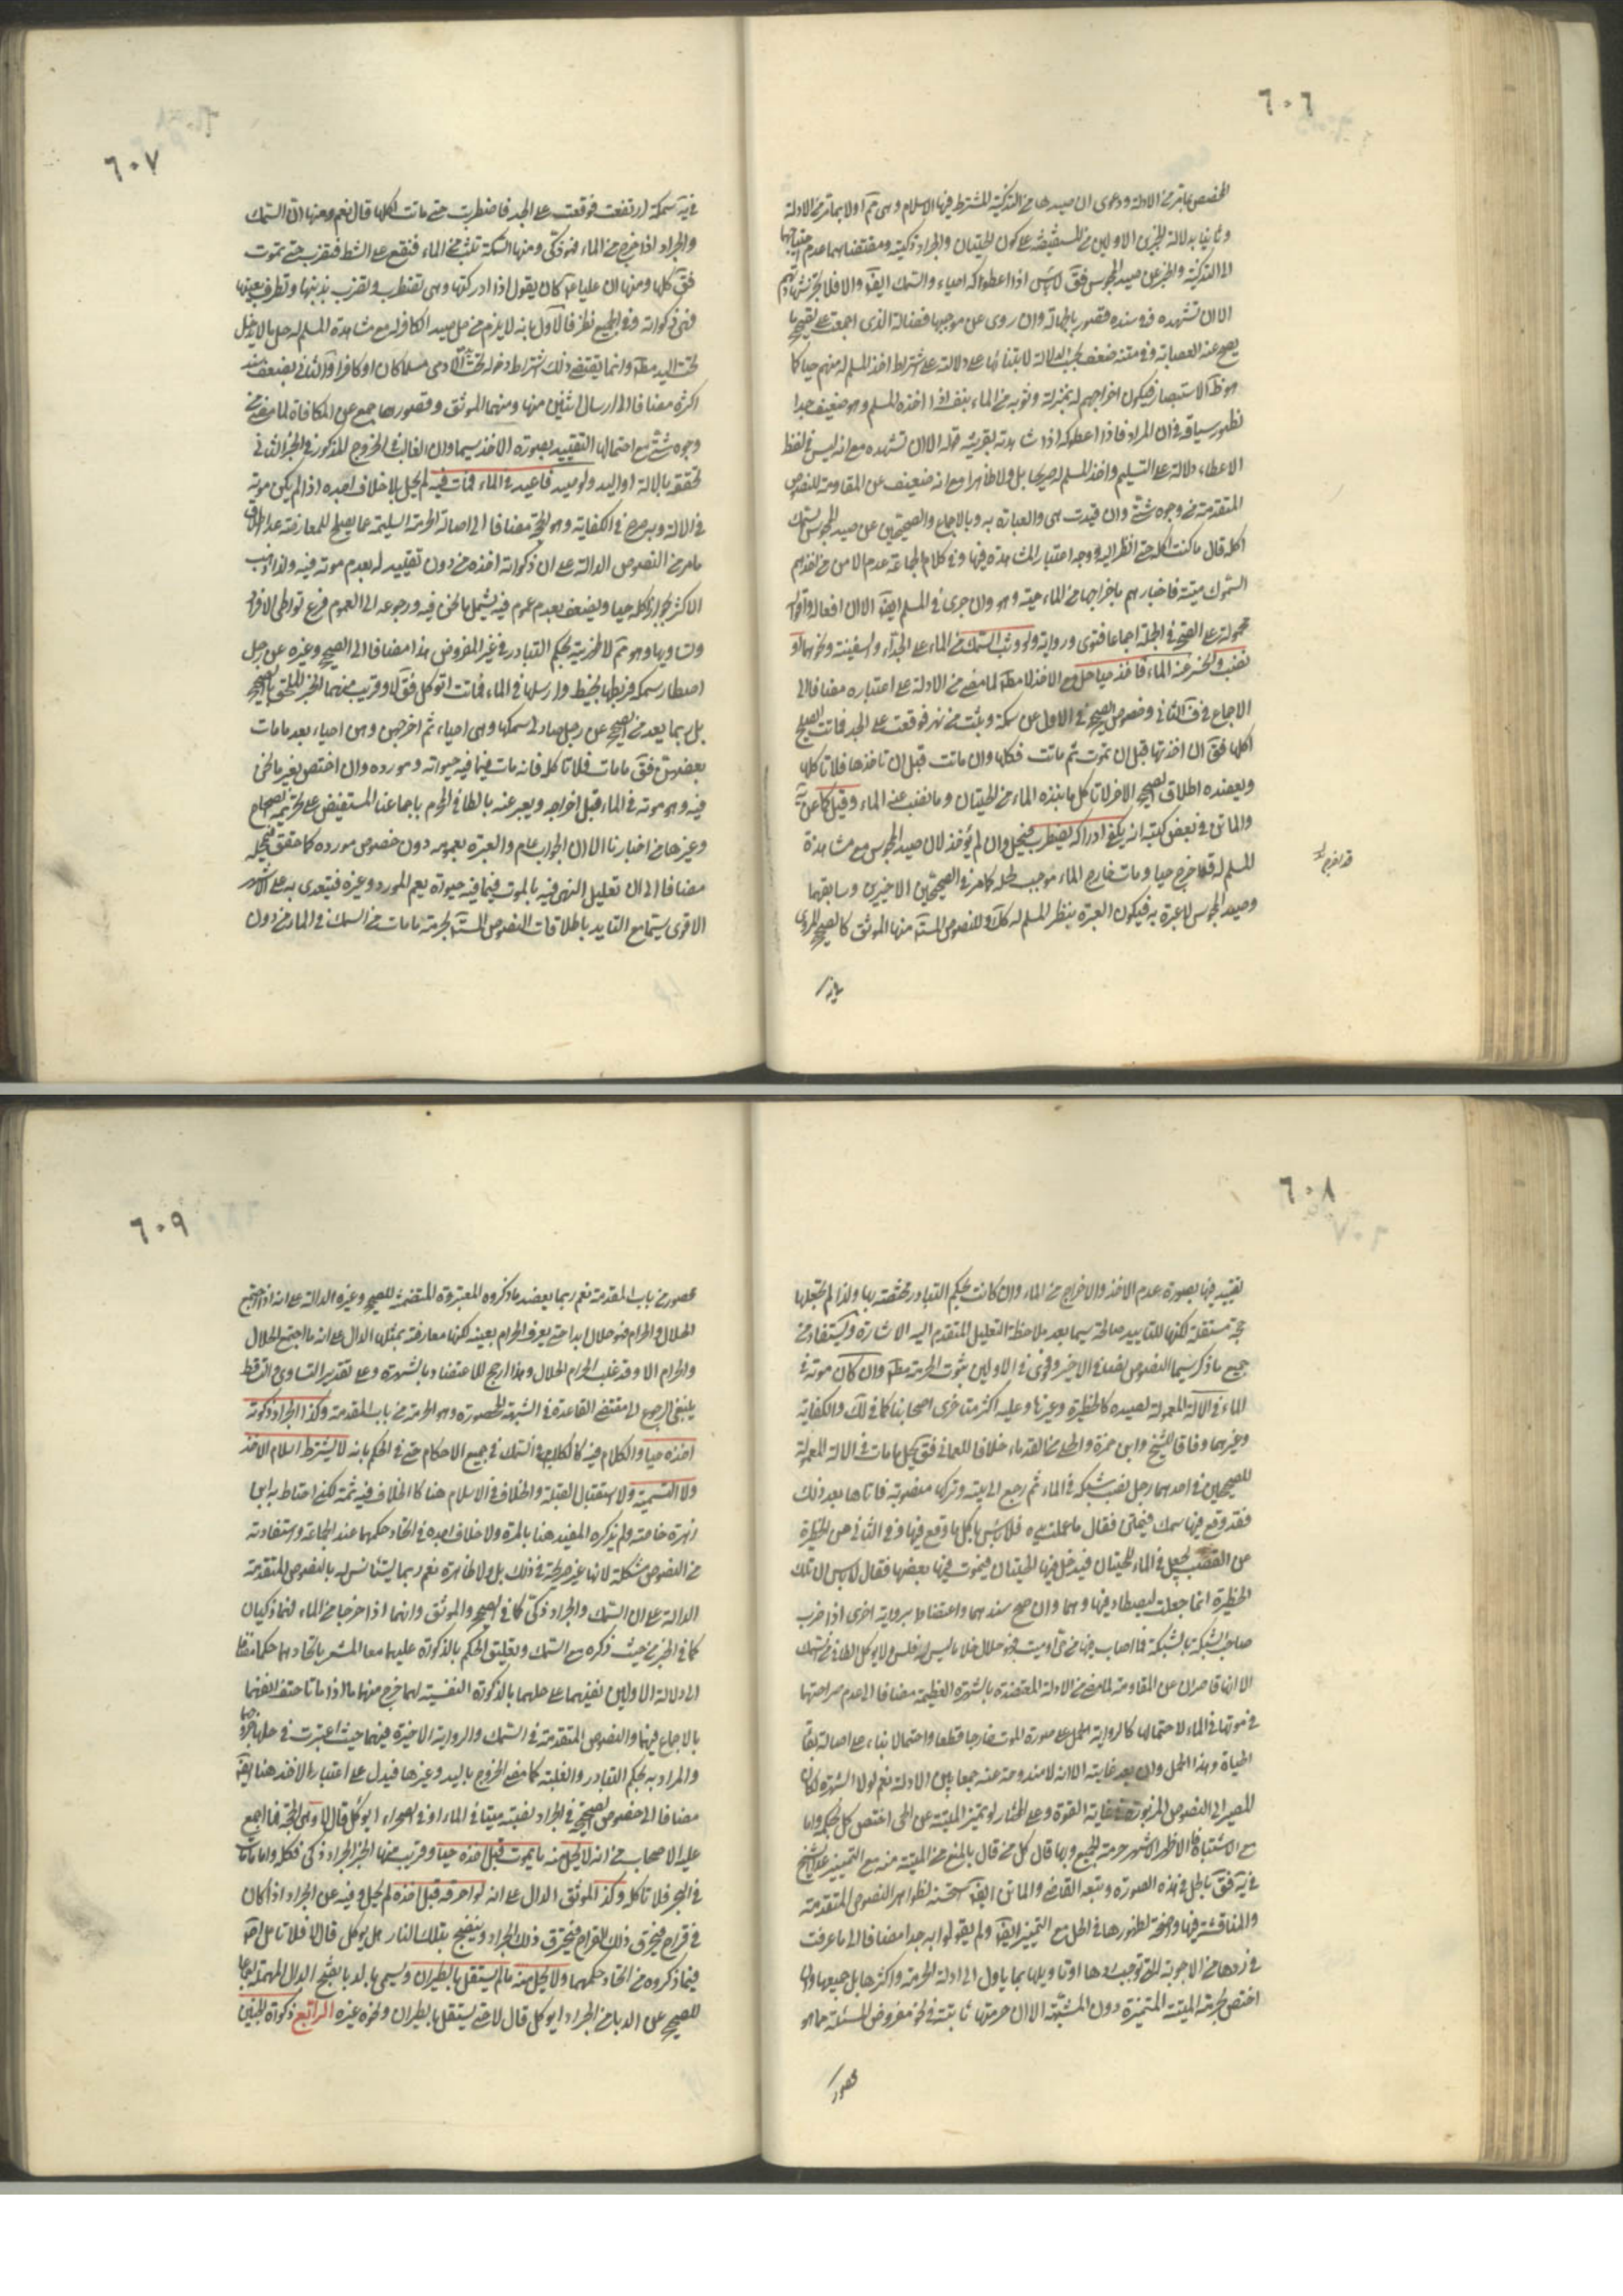 ٦٠٦
المخصص بما مر من الادلة ودعوى ان صيدها من التذكية المشترط فيها الاسلام وهي ثم اولا بما مر من الادلة
وثانيا بدلالة الخبرين الاولين من المستفيضة على كون الحيتان والجراد ذكية ومقتضاهما عدم
الى التذكية والخبر عن صيد المجوس فق لا باس اذا اعطوكه احياء والسمك ايضا والا فلا تجز شهادتهم
الا ان تشهده
يصح عنه العصابة وفي متنه ضعف
هو ظ الاستبصار فيكون اخراجهم له بمنزلة وثوبه من الماء بنفسه اذا اخذه المسلم وهو ضعيف جدا
لظهور سياقه في ان المراد فاذا اعطوكه اذا شاهدته بقرينة قوله الا ان تشهده مع انه ليس في لفظ
الاعطاء دلالة على التسليم واخذ المسلم له صريحا بل ولا ظاهرا مع انه ضعيف عن المقاومة للنصوص
المتقدمة من وجوه شتى وان قيدت هي والعبارة به وبالاجماع والصحيحين عن صيد المجوس للسمك
اكله قال ما كنت اكله حتى انظر اليه ووجه اعتبار المشاهدة فيها وفي كلام الجماعة عدم الامن من اخذهم
السموك ميتة فاخبارهم باخراجها من الماء حية وهو وان جرى في المسلم ايضا الا ان افعاله واقواله
محمولة على الصحة في الجملة اجماعا فتوى ورواية ولو وثب السمك من الماء على الجدد والسفينة ونحوهما او
نضب وانحسر عنه الماء فاخذ حيا حل مع الاخذ لا مط لما مضى من الادلة على اعتباره مضافا الى
الاجماع في ف الثاني وخصوص الصحيح في الاول عن سمكة وثبت من نهر فوقعت على الجد فماتت ايصلح
اكلها فق ان اخذتها قبل ان تموت ثم ماتت فكلها وان ماتت قبل ان تاخذها فلا تاكلها
ويعضده اطلاق الصحيح الاخر لا تاكل ما نبذه الماء من الحيتان وما نضب عنه الماء وقيل كما عن يه
والماتن في بعض كتبه انه يكفي ادراكه يضطرب فيحل وان لم يؤخذ لان صيد المجوس مع مشاهدة
المسلم له قد اخرج حيا ومات خارج الماء موجب لحله كما مر في الصحيحين الاخيرين وسابقهما
وصيد المجوس لا عبرة به فيكون العبرة بنظر المسلم له كك وللنصوص المستفيضة منها الموثق كالصحيح المروي
في يه
٦٠٧
في يه سمكة ارتفعت فوقعت على الجد فاضطربت حتى ماتت اكلها قال نعم ومنها ان السمك
والجراد اذا خرج من الماء فهو ذكي ومنها السمكة تثب من الماء فتقع على الشط فتضطرب حتى تموت
فق كلها ومنها ان عليا ع كان يقول اذا ادركتها وهي تضطرب وتضرب بذنبها وتطرف بعينها
فهي ذكوته وفي الجميع نظر فالاول بانه لا يلزم من حل صيد الكافر له مع مشاهدة المسلم له حل ما لا يدخل
تحت اليد مط وانما يقتضي ذلك اشتراط دخوله تحت يد الادمي مسلما كان او كافرا والثاني بضعف سند
اكثره مضافا الى ارسال اثنين منها ومنهما الموثق وقصورها جمع عن المكافاة لما مضى من
وجوه شتى مع احتمالها التقييد بصورة الاخذ سيما وان الغالب في الخروج المذكور في الخبر الثاني
تحققه بالالة او اليد ولو صيد فاعيد في الماء فمات فيه لم يحل بلا خلاف اجده اذا لم يكن موته
في الالة وبه صرح في الكفاية وهو الحجة مضافا الى اصالة الحرمة السليمة عما يصلح للمعارضة عدا اطلاق
ما مر من النصوص الدالة على ان ذكوته اخذه من دون تقييد له بعدم موته فيه ولذا ذهب
الاكثر بجواز اكله حيا ويضعف بعدم عموم فيه يشمل ما نحن فيه ورجوعه الى العموم فرع تواطي الافراد
وتساويها وهو ثم لاظهرية بحكم التبادر في غير المفروض هذا مضافا الى الصحيح وغيره عن رجل
اصطاد سمكة فربطها بخيط وارسلها في الماء فماتت اتوكل فق لا وقريب منهما الخبر الملحق بالصحيح
بل ربما يعد من الصحيح عن رجل صاد سمكا وهي احياء ثم اخرجهن وهن احياء بعد ما مات
بعضهن فق ما مات فلا تاكله فانه مات فيما فيه حيوته ومورده وان اختص بغير ما نحن
فيه وهو موته في الماء قبل اخراجه ويعبر عنه بالطافي المحرم باجماعنا المستفيض على تحريمه الصحاح
وغيرها من اخبارنا الا ان الجواب عام والعبرة بعمومه دون خصوص مورده كما حقق في محله
مضافا الى ان تعليل النهي فيه بالموت فيما فيه حيوته يعم المورد وغيره فيتعدى به على الاشهر
الاقوى سيما مع التاييد باطلاقات النصوص المستفيضة بحرمة ما مات من السمك في الماء من دون
٦٠٨
تقييد فيها بصورة عدم الاخذ والاخراج من الماء وان كانت بحكم التبادر مختصة بها ولذا لم نجعلها
حجة مستقلة لكنها للتاييد صالحة سيما بعد ملاحظة التعليل المتقدم اليه الاشارة ويستفاد من
جميع ما ذكر سيما النصوص نصا في الاخير وفحوى في الاولين ثبوت الحرمة مط وان كان موته في
الماء في الالة المعمولة لصيده كالحظيرة وغيرها وعليه اكثر متاخري اصحابنا كما في لك والكفاية
وغيرهما وفاقا للشيخ وابن حمزة والحلي من القدماء خلافا للعماني فق يحل ما مات في الالة المعمولة
للصحيحين في احدهما رجل نصب شبكة في الماء ثم رجع الى بيته وتركها منصوبة فاتاها بعد ذلك
فقد وقع فيها سمك فيمتن فقال ما عملت يده فلا باس باكل ما وقع فيها وفي الثاني عن الحظيرة
من القصب يجعل في الماء للحيتان فيدخل فيها الحيتان فيموت فيها بعضها فقال لا باس ان تلك
الحظيرة انما جعلت ليصطاد فيها وهما وان صح سندهما واعتضدا برواية اخرى اذا ضرب
صاحب الشبكة بالشبكة فما اصاب فيها من حي او ميت فهو حلال خلا ما ليس له فلس ولا يوكل الطافي من السمك
الا انها قاصران عن المقاومة لما مضى من الادلة المعتضدة بالشهرة العظيمة مضافا الى عدم صراحتها
في موتها في الماء لاحتمالها كالرواية الحمل على صورة الموت خارجا قطعا واحتمالا بناء على اصالة بقاء
الحياة وهذا الحمل وان بعد غايته الا انه لا مندوحة عنه جمعا بين الادلة نعم لولا الشهرة لكان
المصير الى النصوص المزبورة في غاية القوة وعلى المختار لو تميز الميتة عن الحي اختص كل بحكمه واما
مع الاشتباه فالاظهر الاشهر حرمة الجميع وبها قال كل من قال بالمنع من الميتة منه مع التمييز عدا الشيخ
في يه فق بالحل في هذه الصورة وتبعه القاضي والماتن ايضا استحسنه لظواهر النصوص المتقدمة
والمناقشة فيها واضحة لظهورها في الحل مع التمييز ايضا ولم يقولوا به جدا مضافا الى ما عرفت
في ردها من الاجوبة التي توجب ردها او تاويلها بما ياول الى ادلة الحرمة واكثرها بل جميعها وانما
اختص بحرمة الميتة المتميزة دون المشتبه الا ان حرمتها ثابتة في نحو مفروض المسئلة مما هو
محصور
٦٠٩
محصور من باب المقدمة نعم ربما يعضد ما ذكروه المعتبرة المتضمنة للصحيح وغيره الدالة على انه اذا اجتمع
الحلال والحرام فهو حلال ابدا حتى يعرف الحرام بعينه لكنها معارضة بمثلها الدال على انه ما اجتمع الحلال
والحرام الا وقد غلب الحرام الحلال وهذا ارجح للاعتضاد بالشهرة وعلى تقدير التساوي والتساقط
ينبغي الرجوع الى مقتضى القاعدة في الشبهة المحصورة وهو الحرمة من باب المقدمة وكذا الجراد ذكوته
اخذه حيا والكلام فيه كالكلام في السمك في جميع الاحكام حتى في الحكم بانه لا يشترط اسلام الاخذ
ولا التسمية ولا استقبال القبلة والخلاف في الاسلام هنا كالخلاف فيه ثمة لكن احتاط به ابن
زهرة خاصة ولم يذكره المفيد هنا بالمرة ولا خلاف اجده في اتحاد حكمهما عند الجماعة واستفادته
من النصوص مشكلة لانها غير صريحة في ذلك بل ولا ظاهرة نعم ربما يستانس له بالنصوص المتقدمة
الدالة على ان السمك والجراد ذكي كما في الصحيح والموثق وانهما اذا خرجا من الماء فهما ذكيان
كما في الخبر من حيث ذكره مع السمك وتعليق الحكم بالذكوة عليهما معا المشعر باتحادهما حكما مضافا
الى دلالة الاولين بنفسهما على حلهما بالذكوة النفسية لهما خرج منهما ما اذا ماتا حتف انفهما
بالاجماع فيهما والنصوص المتقدمة في السمك والرواية الاخيرة فيهما حيث اعتبرت في حلها خروجها
والمراد به بحكم التبادر والغلبة كما مضى الخروج باليد وغيرها فيدل على اعتبار الاخذ هنا ايضا
مضافا الى خصوص الصحيح في الجراد نصيبه ميتا في الماء او في الصحراء ايوكل قال لا وهي الحجة فيما اجمع
عليه الاصحاب من انه لا يحل منه ما يموت قبل اخذه حيا وقريب منها الخبر الجراد ذكي فكله واما ما مات
في البحر فلا تاكله وكذا الموثق الدال على انه لو احرقه قبل اخذه لم يحل وفيه عن الجراد اذا كان
في قراح فيحرق ذلك القراح فيحترق ذلك الجراد وينضج بتلك النار هل يوكل قال لا فلا تامل
فيما ذكروه من اتحاد حكمهما ولا يحل منه ما لم يستقل بالطيران ويسمى بالدبا بفتح الدال المهملة اجماعا
للصحيح عن الدبا من الجراد ايوكل قال لا حتى يستقل بالطيران ونحوه غيره الرابع ذكوة الجنين